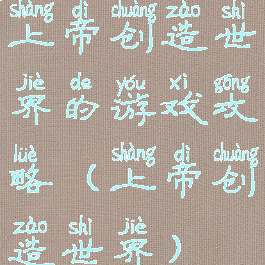 shàng dì chuàng zào shì
上帝创造世
jiè de yóu xì gōng
界的游戏攻
lüè shàng dì chuàng
略（上帝创
zào shì jiè
造世界）